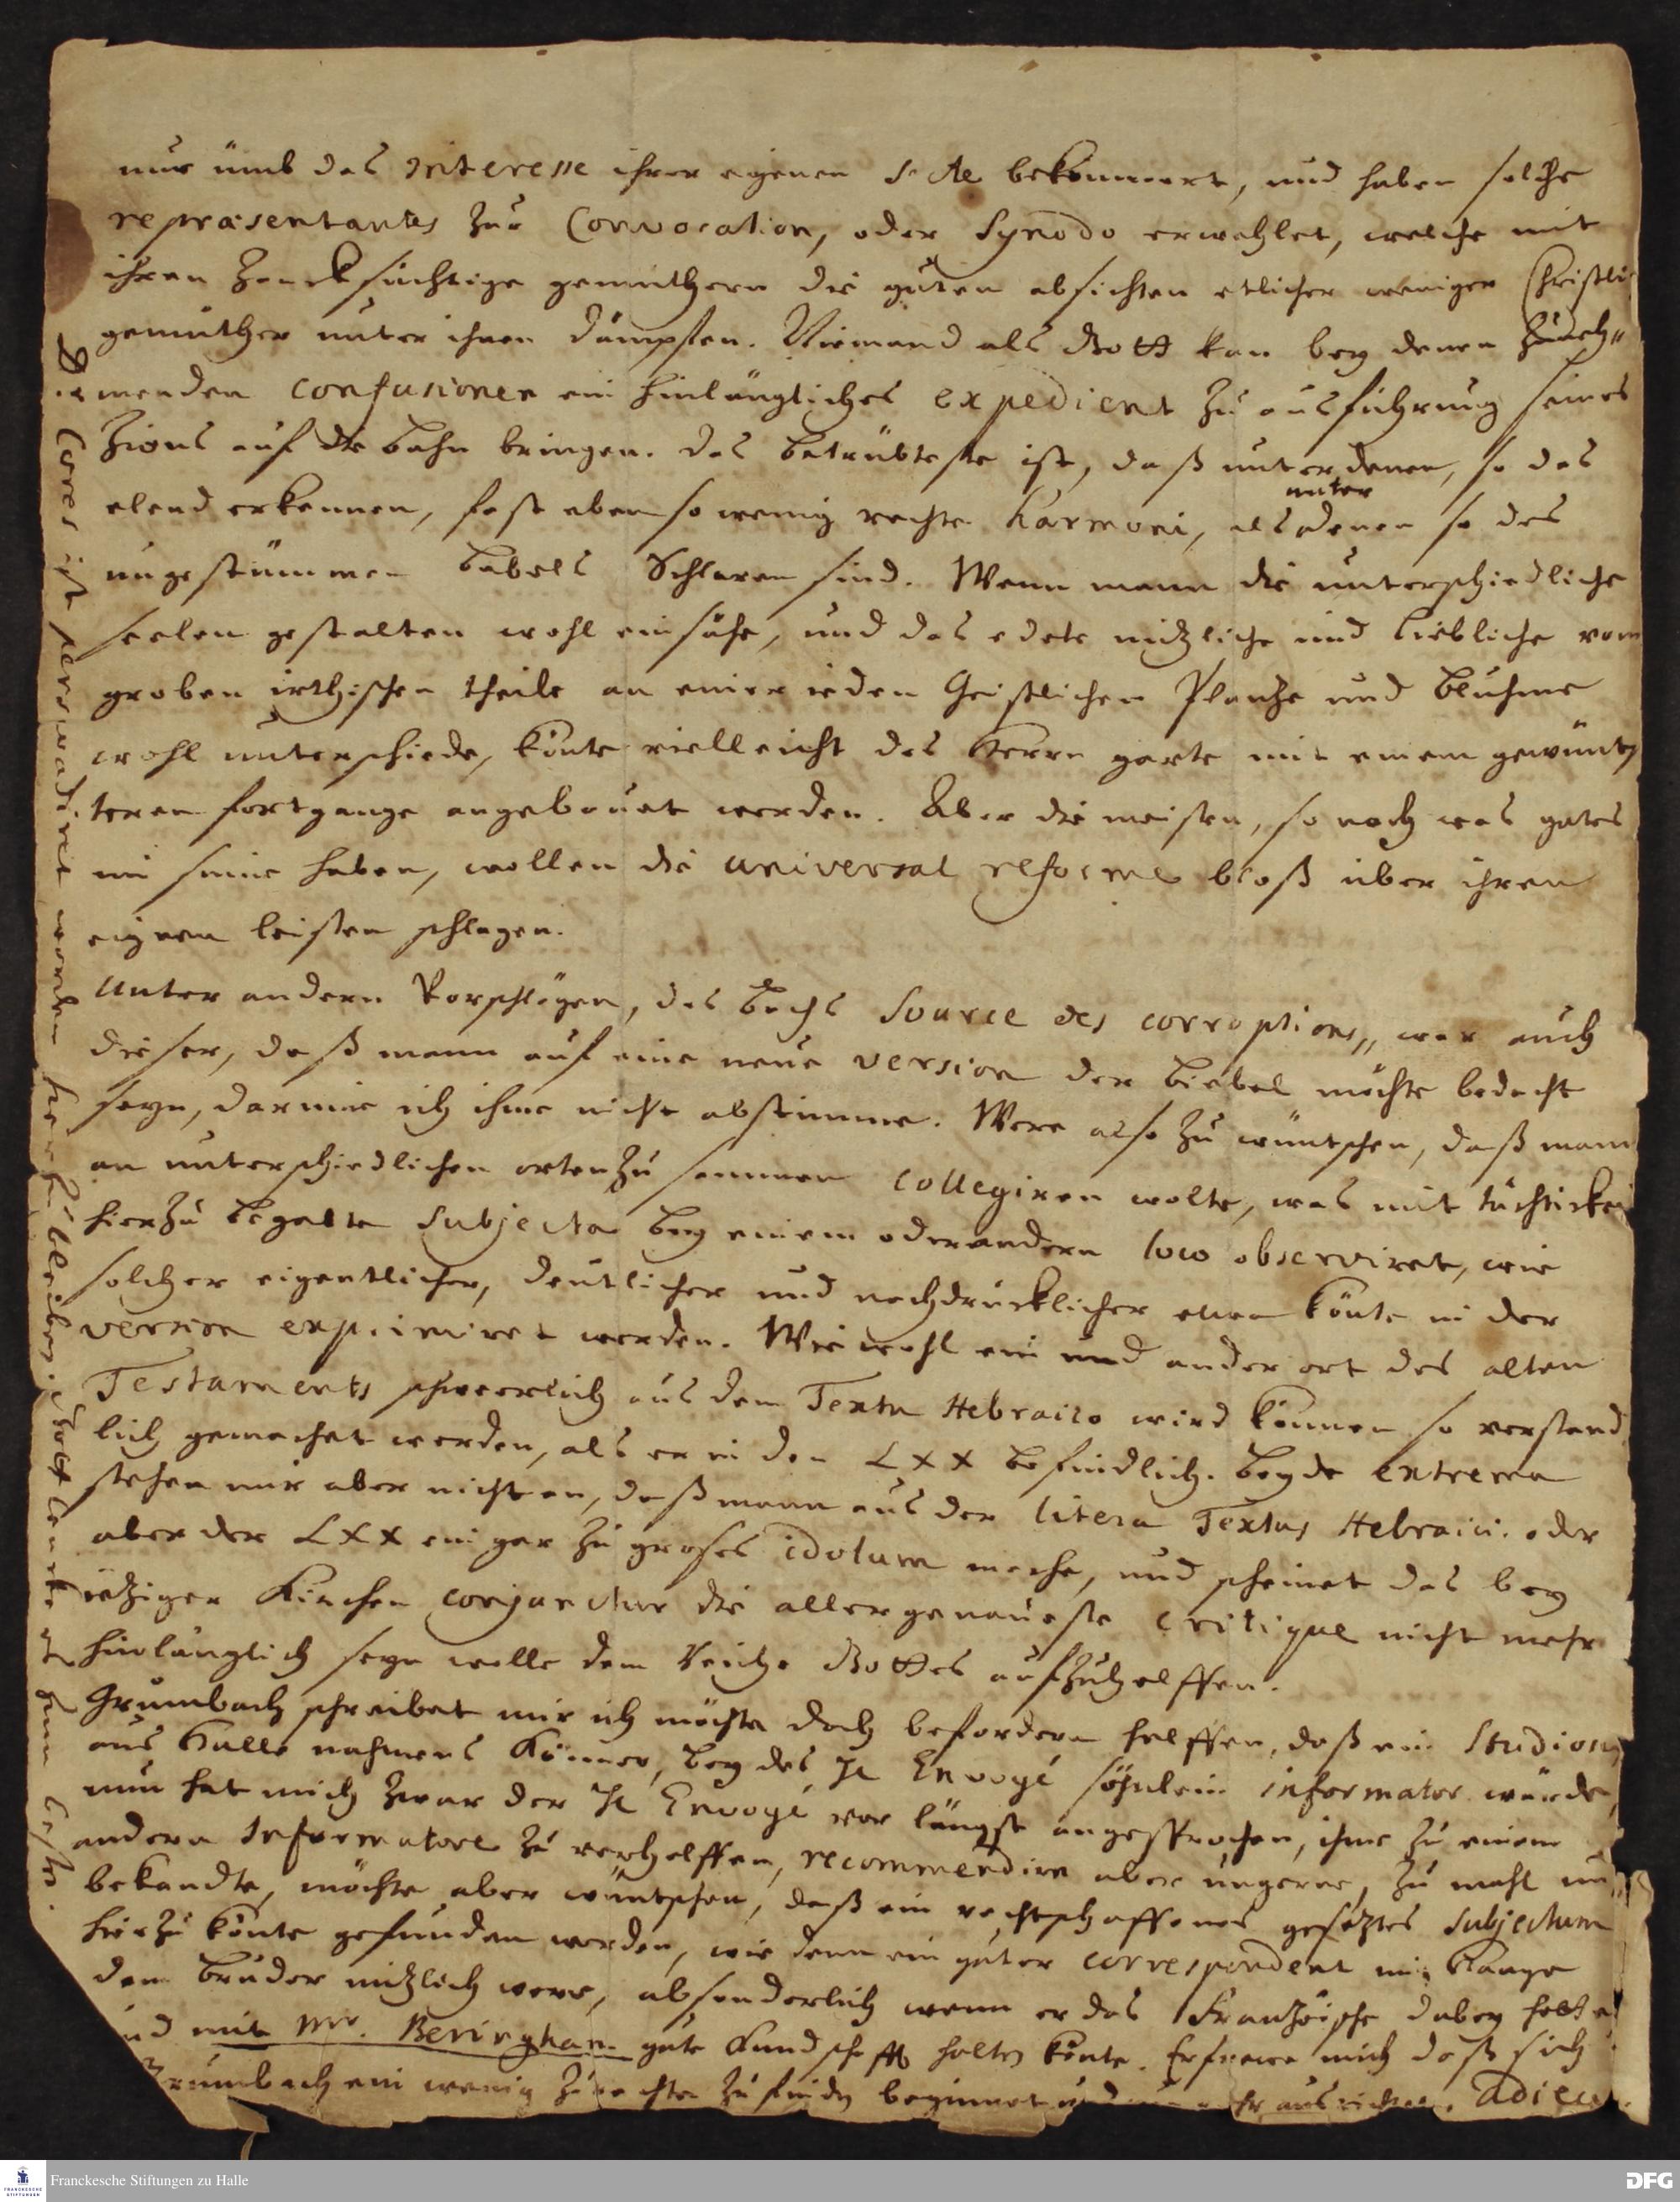 nur umb das Interesse ihrer eigenen Secte bekömmert, und haben solche
repræsentantes zur Convocation, oder Synodo erwehlet, welche mit
ihren Zancksüchtige gemüthern die guten absichten etlicher weniger Christli
gemüther unter ihnen dämpften. Niemand als Gott kan bey denen zuneh„
menden confusionen ein hinlängliches expedient zu ausführung seines
Zions auf die bahn bringen. Das betrübteste ist, daß unter denen, so das
elend erkennen, fast eben so wenig rechte harmoni, als unter denen so des
ungestümmen Babels Schlaven sind. Wenn mann die unterschiedliche
seelen gestalten wohl einsähe, und das edele nützliche und liebliche vom
groben irrdischen theile an einer ieden Geistlichen Plantze und Bluhme
wohl unterschiede, könte vielleicht des Herrn garte mit einem gewünts
teren fortgange angebauet werden. Aber die meisten, so noch was gutes
im sinne haben, wollen die universal reforme bloß über ihren
eignen leisten schlagen.
Unter andern Vorschlägen, des buchs Source des corruptions„ war auch
dieser, daß mann auf eine neue version der Biebel möchte bedacht
seyn, darinne ich ihme nicht abstimme. Were also zu wüntschen, daß mann
an unterschiedlichen orten zu sammen colligiren wolte, was mit tüchtickei
hierzu begabte Subjecta bey einem oder andern loco observiret, wie
solcher eigentlicher, deutlicher und nachdrücklicher etwa könte in der
version exprimiret werden. Wie wohl ein und ander ort des alten
Testaments schwerlich aus dem Textu Hebraico wird können so verständ
lich gemachet werden, als er in den LXX befindlich. Beyde extrema
stehen mir aber nicht an, daß mann aus der litera Textus Hebraici oder
aber der LXX ein gar zu groses idolum mache, und scheinet das bey
ietziger Kirchen conjunctur die allergenaueste critique nicht mehr
hinlänglich seyn wolle dem Reiche Gottes aufzuhelffen.
Grumbach schreibet mir ich möchte doch befördern helffen, daß ein Studiosus
aus Halle nahmens Körner, bey des H Envoyé söhnlein informator würde,
nun hat mich zwar der H Envoyé vor längst angesprochen, ihme zu einem
andern Informatore zu verhelffen, recommendire aber ungerne, zu mahl un
bekandte, möchte aber wüntschen, daß ein rechtschaffenes gesetztes Subjectum
hierzu könte gefunden werden, wie denn ein guter correspondent im Haage
dem Bruder nützlich were, absonderlich wenn er das Frantzöische dabey hette
und mit Mr. Beringhan gute Kundschafft halten könte. Erfreue mich daß sich
Grumbach ein wenig zu rechte zu finden beginnet Adieu.
ist persuadiret worden hier zu bleiben. Gott lencke zum besten.